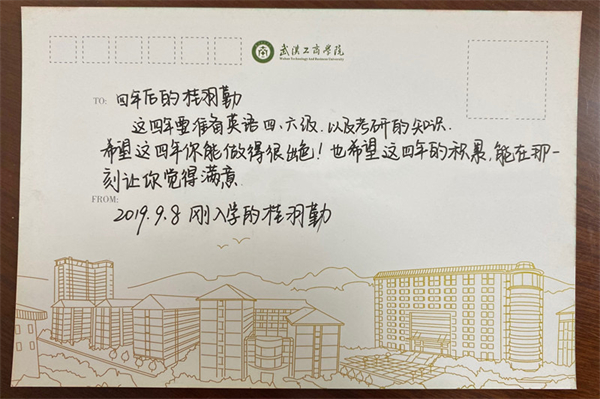 武汉工商学院
Wuhan Technology And Business University
TO: 四年后的桂羽勤
这四年要准备英语四、六级.以及考研的知识.
希望这四年你能做得很出色!也希望这四年的积累,能在那一
刻让你觉得满意.
FROM:
2019.9.8 刚入学的桂羽勤